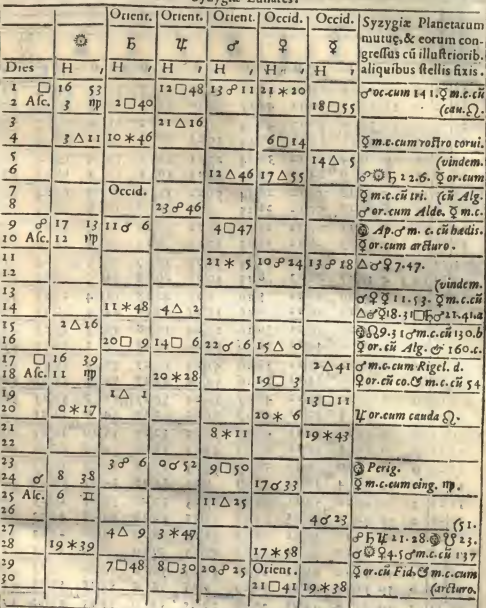 Syzygiæ Lunares.
Orient. Orient. Orient. Occid. Occid. Syzygiæ Planetarum
☼ ♄ ♃ ♂ ♀ ☿ mutuę, & eorum con-
gressus cũ illustriorib.
Dies H , H , H , H , H , H , aliquibus stellis fixis.
1 □ 16 53 12 □ 48 13 ☍ 11 21 ⚹ 20 ♂ oc. cum 141. ☿ m.c. cũ
2 Asc. 3 ♍ 2 □ 40 18 □ 55 (cau. ♌.
3 21 △ 16
4 3 △ 11 10 ⚹ 46 6 □ 14 ☿ m.c. cum rostro corui.
5 14 △ 5 (vindem.
6 12 △ 46 17 △ 55 ☍ ☼ ♄ 22.6. ☿ or. cum
7 Occid. ☿ m.c. cũ tri. (cũ Alg.
8 23 ☍ 46 ♂ or. cum Alde. ☿ m.c.
9 ☍ 17 13 11 ☌ 6 4 □ 47 Ap. ♂ m.c. cũ hædis.
10 Asc. 12 ♍ ☿ or. cum arcturo.
11 21 ⚹ 5 10 ☍ 24 13 ☍ 18 △ ♂ ♀ 7.47.
12
13 (vindem.
14 11 ⚹ 48 4 △ 2 ☌ ♀ ☿ 11.53. ☿ m.c. cũ
15 2 △ 16 △ ♂ ☿ 18.31 □ ♄ ♂ 21.41.a
16 20 □ 9 14 □ 6 22 ☌ 6 15 △ 0 ♌ 9.31 ♂ m.c. cũ 130.b
17 □ 16 39 2 △ 41 ☿ or. cũ Alg. & 160.c.
18 Asc. 11 ♍ 20 ⚹ 28 19 □ 3 ♂ m.c. cum Rigel. d.
19 1 △ 1 13 □ 11 ☿ or. cũ co. & m.c. cũ 54
20 0 ⚹ 17 20 ⚹ 6 ♃ or. cum cauda ♌.
21 8 ⚹ 11
22 19 ⚹ 43
23 3 ☍ 6 0 ☌ 52 9 □ 50 Perig.
24 ☌ 8 38 17 ☌ 33 ☿ m.c. cum cing. ♍.
25 Asc. 6 ♊ 11 △ 25
26 4 ☌ 23 (51.
27 4 △ 9 3 ⚹ 47 ☍ ♄ ♃ 21.28. ☋ 23.
28 19 ⚹ 39 17 ⚹ 58 ☌ ☼ ♀ 4.5 ♂ m.c. cũ 137
29 7 □ 48 8 □ 30 20 ☍ 25 Orient. ☿ or. cũ Fid. & m.c. cum
30 21 □ 41 19 ⚹ 38 (arcturo.